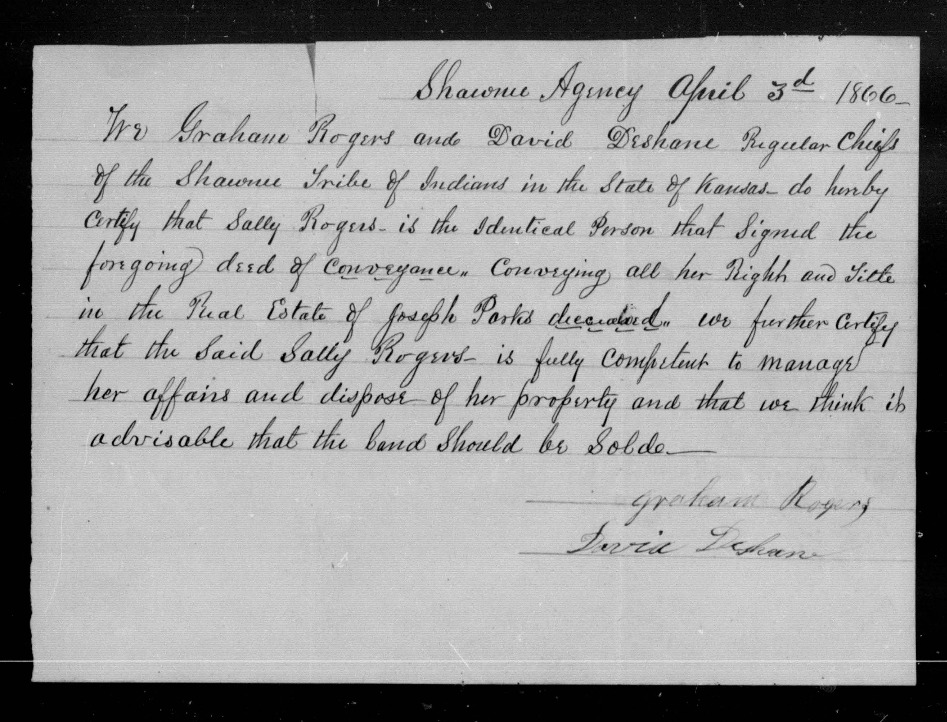 Shawnee Agency April 3d 1866
We Graham Rogers and David Deshane Regular Chiefs
of the Shawnee Tribe of Indians in the State of Kansas do hereby
Certify that Sally Rogers is the Identical Person that Signed the
foregoing deed of conveyance" Conveying all her Right and Title
in the Real Estate of Joseph Parks deceased" we further Certify
that the Said Sally Rogers is fully competent to manage
her affairs and dispose of her property and that we think it
advisable that the land Should be Solde
Graham Rogers
David Deshane